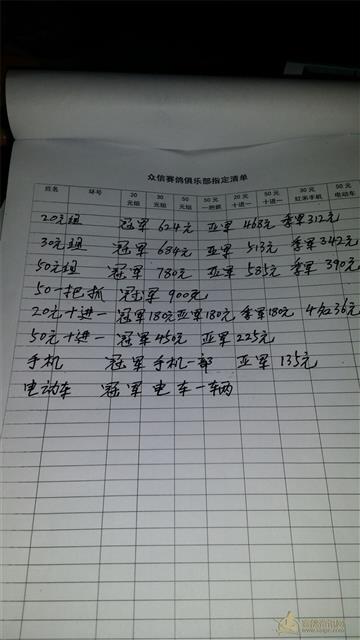 众信赛鸽俱乐部指定清单
姓名 环号 20元组 30元组 50元组 50元一把抓 20元十进一 50元十进一 30元红米手机 50元电动车
20元组 冠军624元 亚军468元 季军312元
30元组 冠军684元 亚军513元 季军342元
50元组 冠军780元 亚军585元 季军390元
50一把抓 冠军900元
20元十进一 冠军180元 亚军180元 季军180元 4名36元
50元十进一 冠军450元 亚军225元
手机 冠军手机一部 亚军135元
电动车 冠军电车一辆